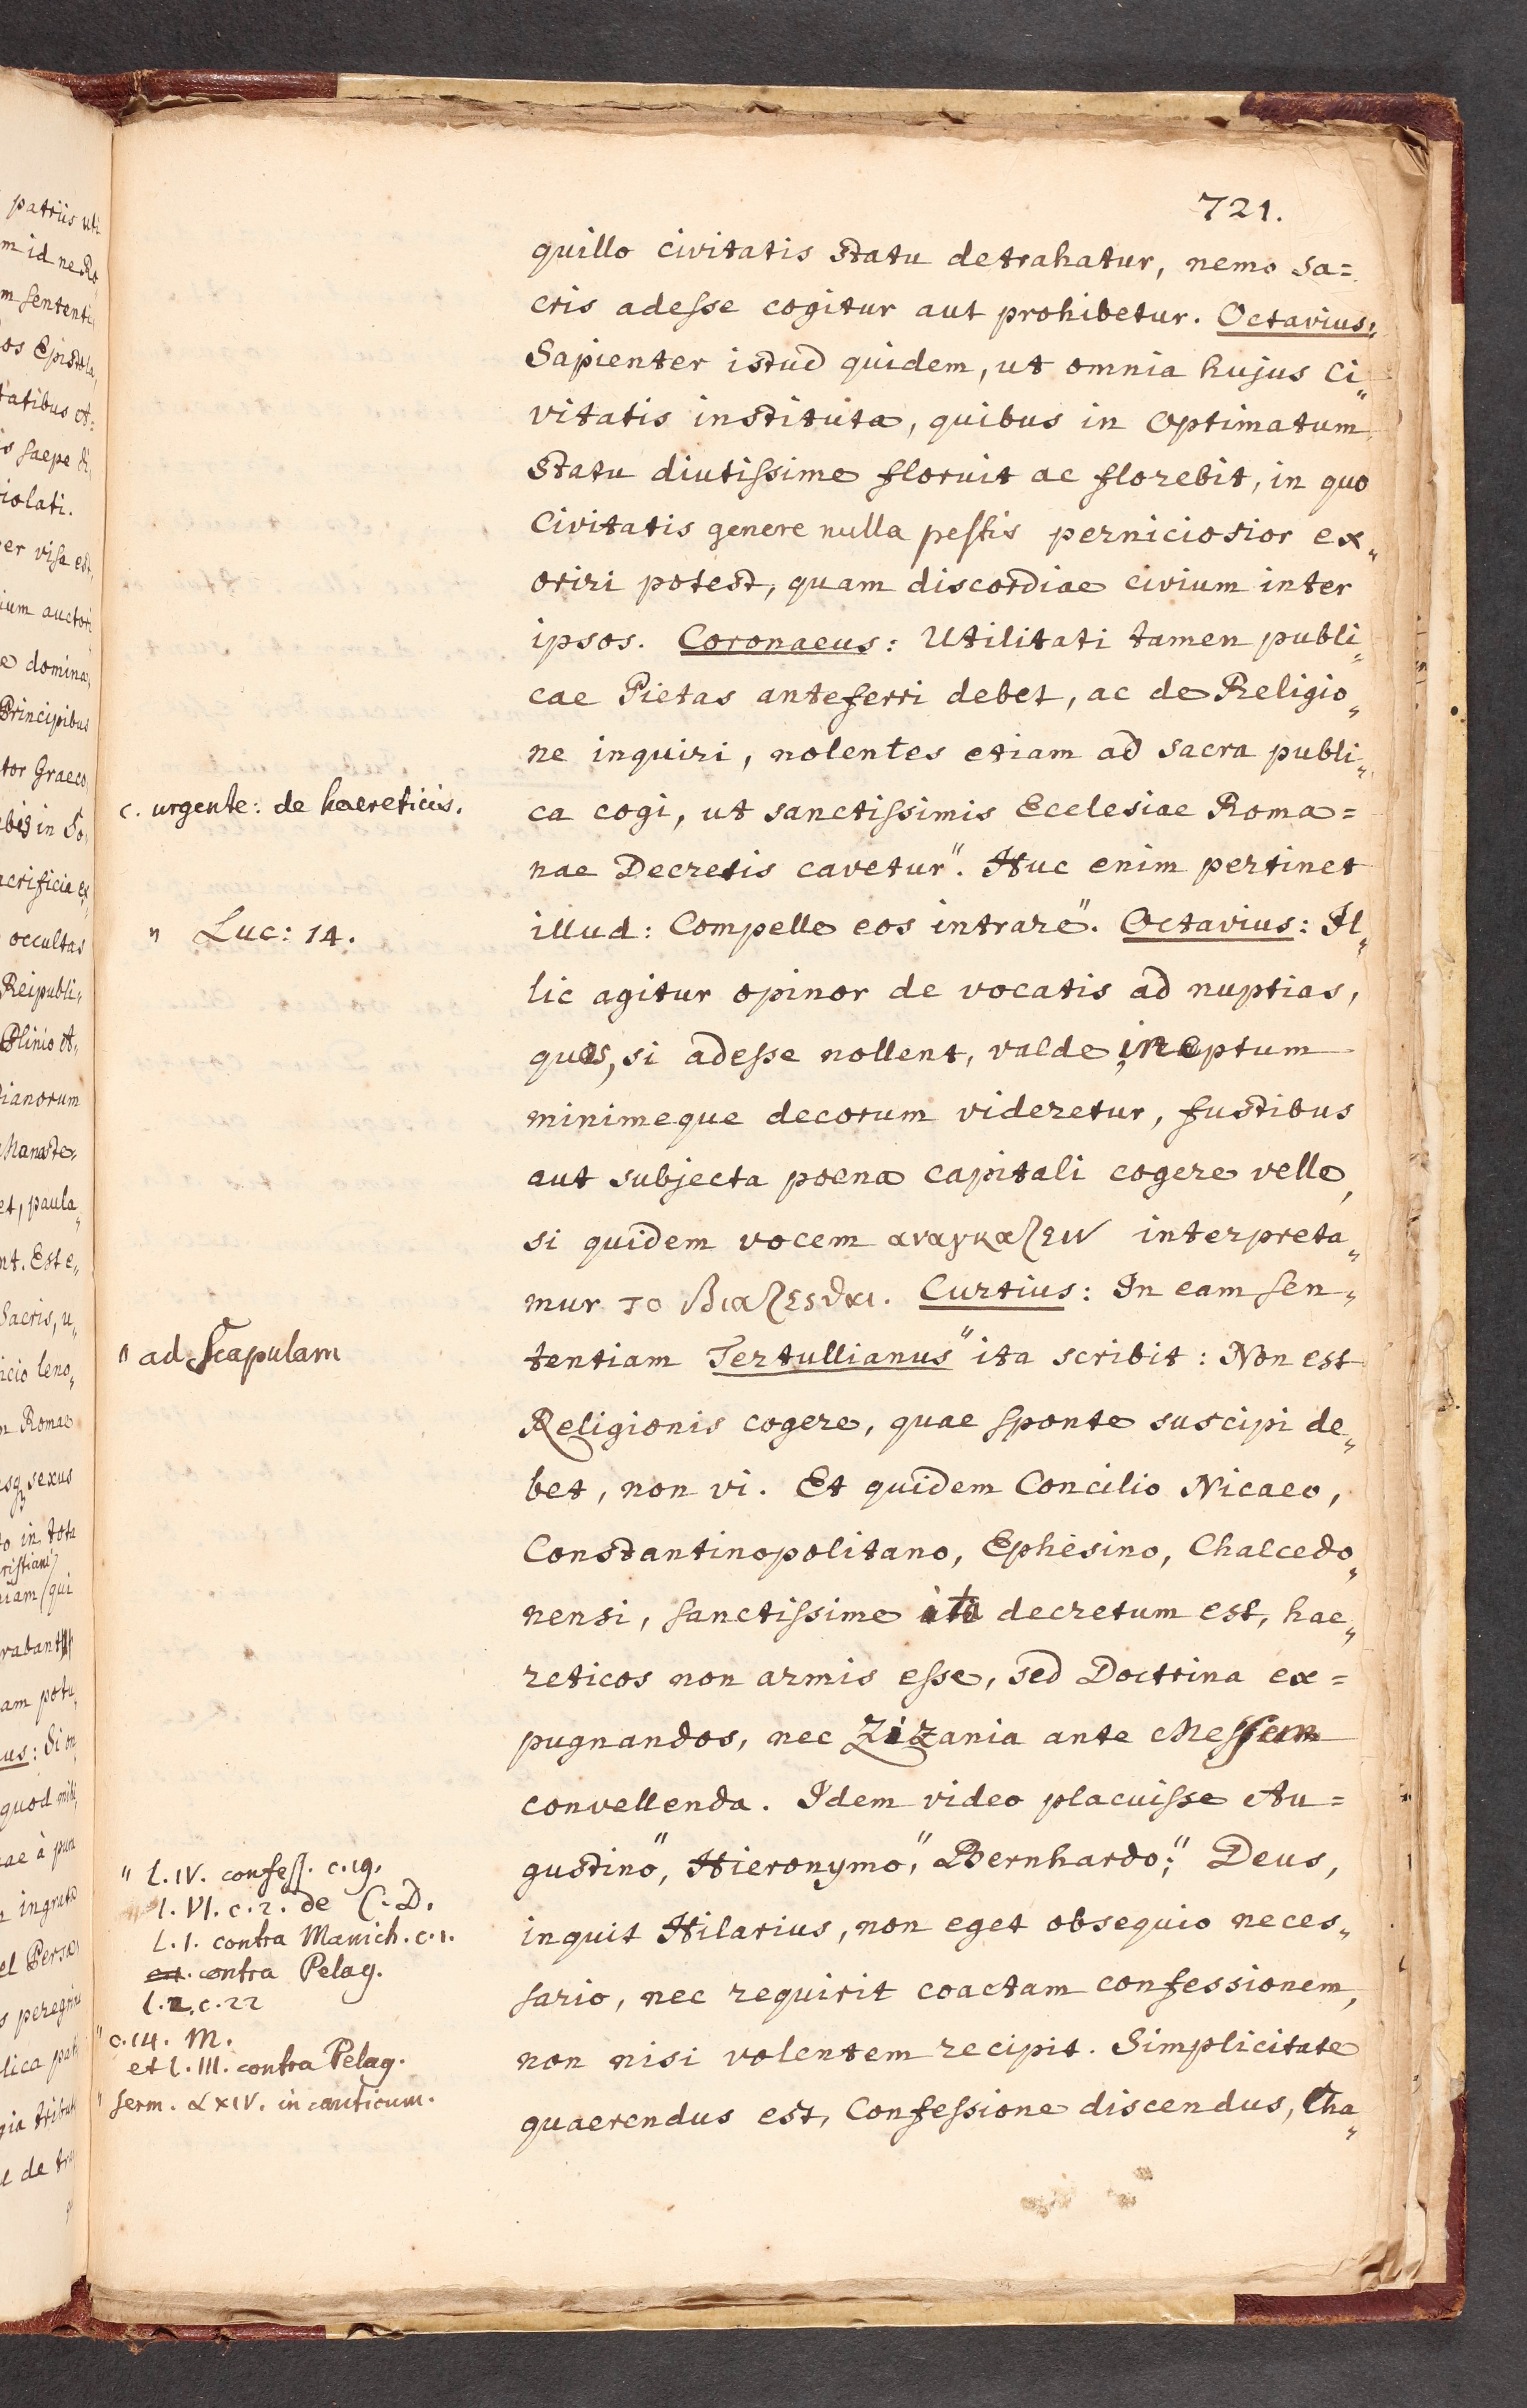 721.
quillo civitatis statu detrahatur, nemo sa=
cris adesse cogitur aut prohibetur. Octavius:
Sapienter istud quidem, ut omnia hujus Ci„
vitatis instituta, quibus in Optimatum
statu diutissime floruit ac florebit, in quo
Civitatis genere nulla pestis perniciosior ex„
oriri potest, quam discordiae civium inter
ipsos. Coronaeus: Utilitati tamen publi„
cae Pietas anteferri debet, ac de Religio„
ne inquiri, nolentes etiam ad sacra publi„
c. urgente: de haereticis.
ca cogi, ut sanctissimis Ecclesiae Roma=
nae Decretis cavetur". Huc enim pertinet
" Luc: 14.
illud: Compelle eos intrare". Octavius: Il„
lic agitur opinor de vocatis ad nuptias,
quos, si adesse nollent, valde ineptum
minimeque decorum videretur, fustibus
aut subjecta poena capitali cogere velle,
si quidem vocem αναγκαζειν interpreta„
mur το βιαζεσθαι. Curtius: In eam sen„
" ad Scapulam
tentiam Tertullianus" ita scribit: Non est
Religionis cogere, quae sponte suscipi de„
bet, non vi. Et quidem Concilio Nicaeo,
Constantinopolitano, Ephesino, Chalcedo„
nensi, sanctissime ita decretum est, hae„
reticos non armis esse, sed Doctrina ex=
pugnandos, nec Zizania ante Messem
convellenda. Idem video placuisse Au=
" l. IV. confess. c. 19.
l. VI. c. 2. de C. D.
L. 1. contra Manich. c. 1.
contra Pelag.
l. 2. c. 22
" c. 14. M.
et l. III. contra Pelag.
" serm. LXIV. in canticum.
gustino", Hieronymo", Bernhardo": Deus,
inquit Hilarius, non eget obsequio neces„
sario, nec requirit coactam confessionem,
non nisi volentem recipit. Simplicitate
quaerendus est, Confessione discendus, Cha„